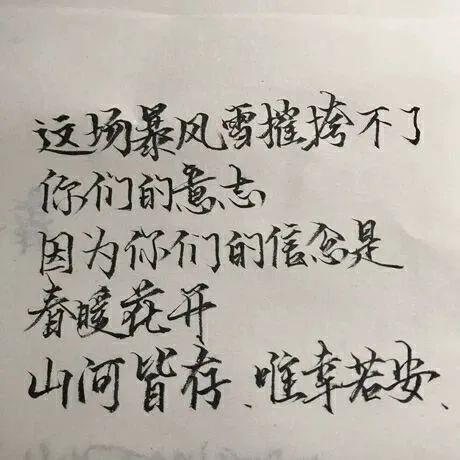 这场暴风雪摧挎不了
你们的意志
因为你们的信念是
春暖花开
山河皆存、唯幸若安、